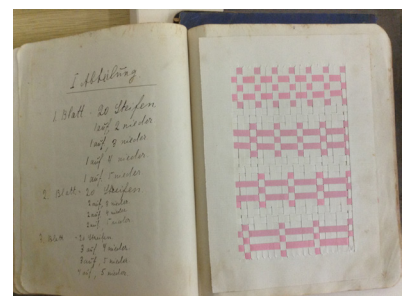 I Abteilung
1 Blatt - 20 Streifen
1 auf, 2 nieder
1 auf, 3 nieder
1 auf, 4 nieder
1 auf, 5 nieder
2 Blatt - 20 Streifen
2 auf, nieder
2 auf, nieder
2 auf, nieder
Blatt - 20 Streifen
3 auf, 4 nieder
3 auf, 5 nieder
4 auf, 5 nieder